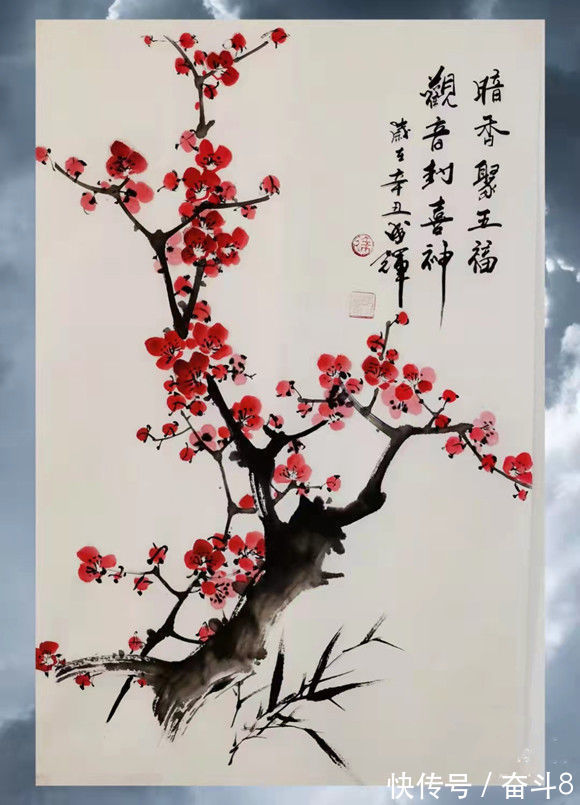 暗香聚五福
觀音封喜神
歲在辛丑
輝
快传号 / 奋斗8